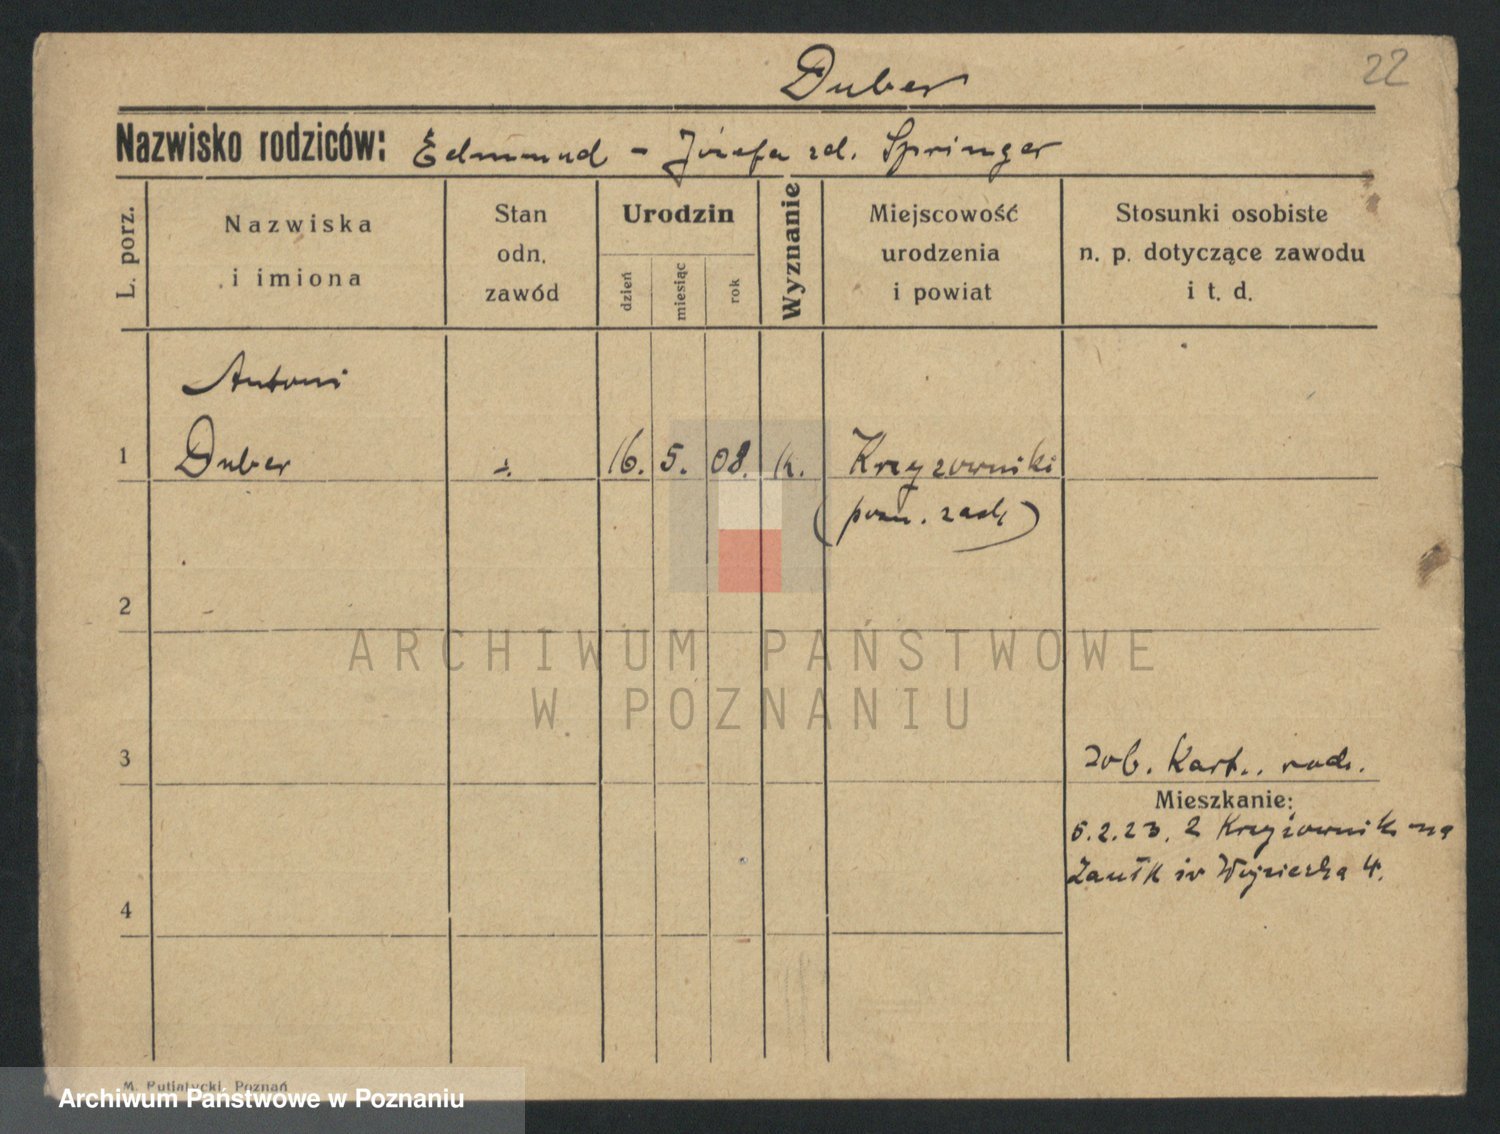 Duber
22
Nazwisko rodziców: Edmund - Józefa zd. Springer
L. porz.
Nazwiska
i imiona
Stan
odn.
zawód
Urodzin
dzień
miesiąc
rok
Wyznanie
Miejscowość
urodzenia
i powiat
Stosunki osobiste
n. p. dotyczące zawodu
i t. d.
Antoni
1 Duber 16. 5. 08. k. Krzyzowniki
(pozn. zach)
2
3
zob. Kart. rodz.
Mieszkanie:
6.2.23. z Krzyżownik na
Zaułk św Wojciecha 4.
4
M. Putiatycki, Poznań
ARCHIWUM PAŃSTWOWE
W POZNANIU
Archiwum Państwowe w Poznaniu